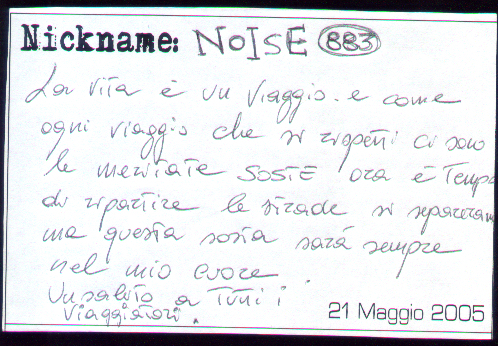 Nickname: NOISE 883
La vita è un viaggio. e come
ogni viaggio che si rispetti ci sono
le meritate SOSTE ora è tempo
di ripartire le strade si separeranno
ma questa sosta sarà sempre
nel mio cuore
Un saluto a tutti i
viaggiatori.
21 Maggio 2005